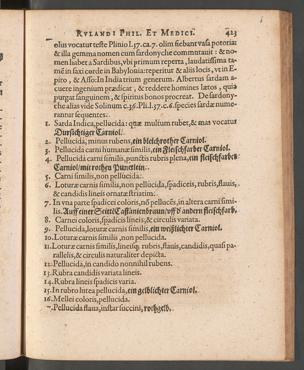 RVLANDI PHIL. ET MEDICI. 423
olius vocatur teste Plinio l.37.ca.7. olim fiebant vasa potoria:
& illa gemma nomen cum sardonyche commutauit: & no-
men habet a Sardibus, vbi primum reperta, laudatissima ta-
mē in saxi corde in Babylonia: reperitur & aliis locis, vt in E-
piro, & Asso: In India trium generum. Albertus sardam a-
cuere ingenium prædicat, & reddere homines lætos, quia
purget sanguinem, & spiritus bonos procreat. De sardony-
che alias vide Solinum c.36. Pli.l.37.c.6. species sardæ nume-
rantur sequentes:
1. Sarda Indica, pellucida: quæ multum rubet, & mas vocatur
Durſichtiger Carniol.
2. Pellucida, minus rubens, ein bleichrother Carniol.
3. Pellucida carni humanæ similis, ein Fleiſchfarber Carniol.
4. Pellucida carni similis, punctis rubris plena, ein fleiſchfarber
Carniol/mit rothen Pünctlein.
5. Carni similis, non pellucida.
6. Loturæ carnis similis, non pellucida, spadiceis, rubris, flauis,
& candidis lineis ornæ striatim.
7. In vna parte spadicei coloris, nō pellucēs, in altera carni simi-
lis. Auff einer Seitten Caſtanienbraun/ off d'andern fleiſchfarb.
8. Carnei coloris, spadiceis lineis, & circulis variata.
9. Pellucida, loturæ carnis similis, ein weißlichter Carniol.
10. Loturæ carnis similis, non pellucida.
11. Loturæ carnis similis, lineisq; rubris, flauis, candidis, quasi pa-
rallelis, & circulis naturaliter depicta.
12. Pellucida, in candido nonnihil rubens.
13. Rubra candidis variata lineis.
14. Rubra lineis spadicis varia.
15. In rubro lutea pellucida, ein gelblichter Carniol.
16. Mellei coloris, pellucida.
17. Pellucida flaua, instar succini, rothgelb.